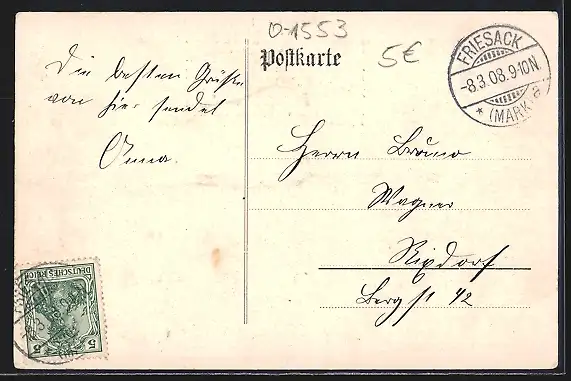 0-1553
Postkarte
5€
FRIESACK
-8.3.08.9-10N.
* (MARK) a
Die besten Grüße
von hier sendet
Anna.
Herrn Bruno
Wagner
Rixdorf
Berg st 42
DEUTSCHES REICH
5 5